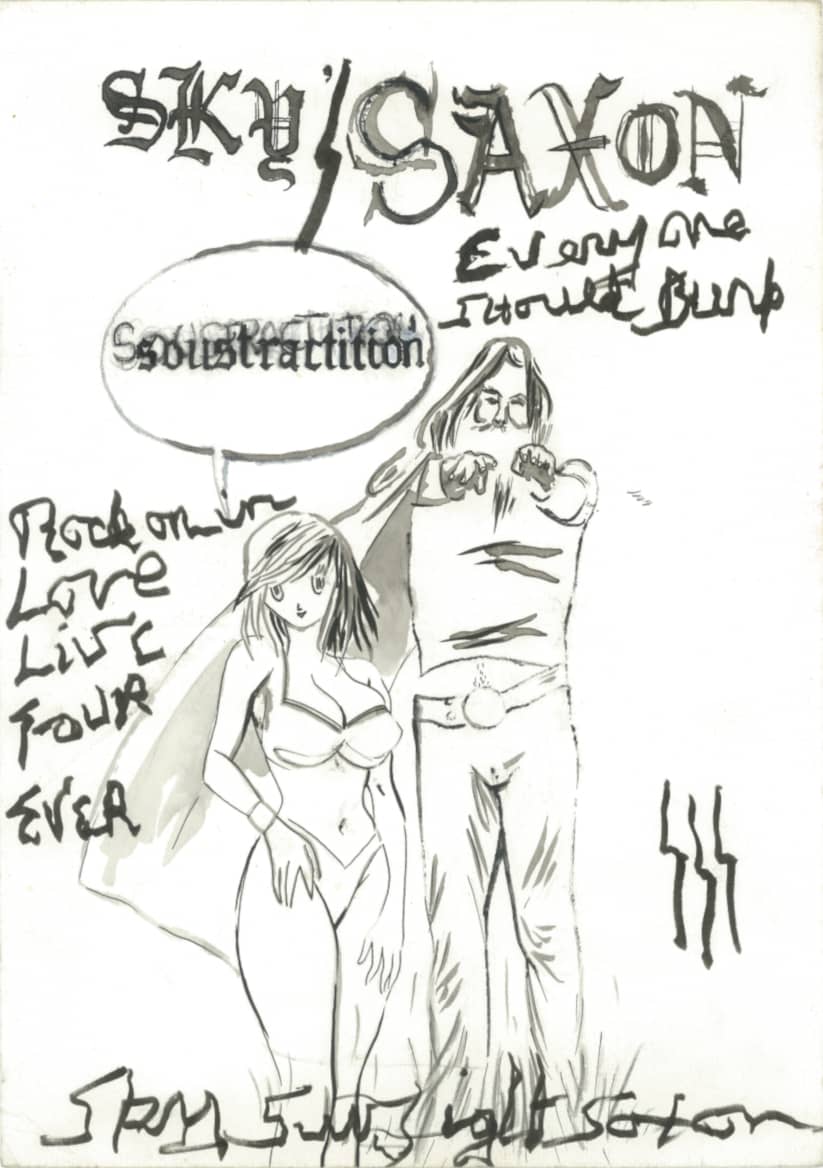 SKY SAXON
Every one
should
soustractition
Rock on in
Love
Live
FOUR
EVER
Sky Sunlight Saxon